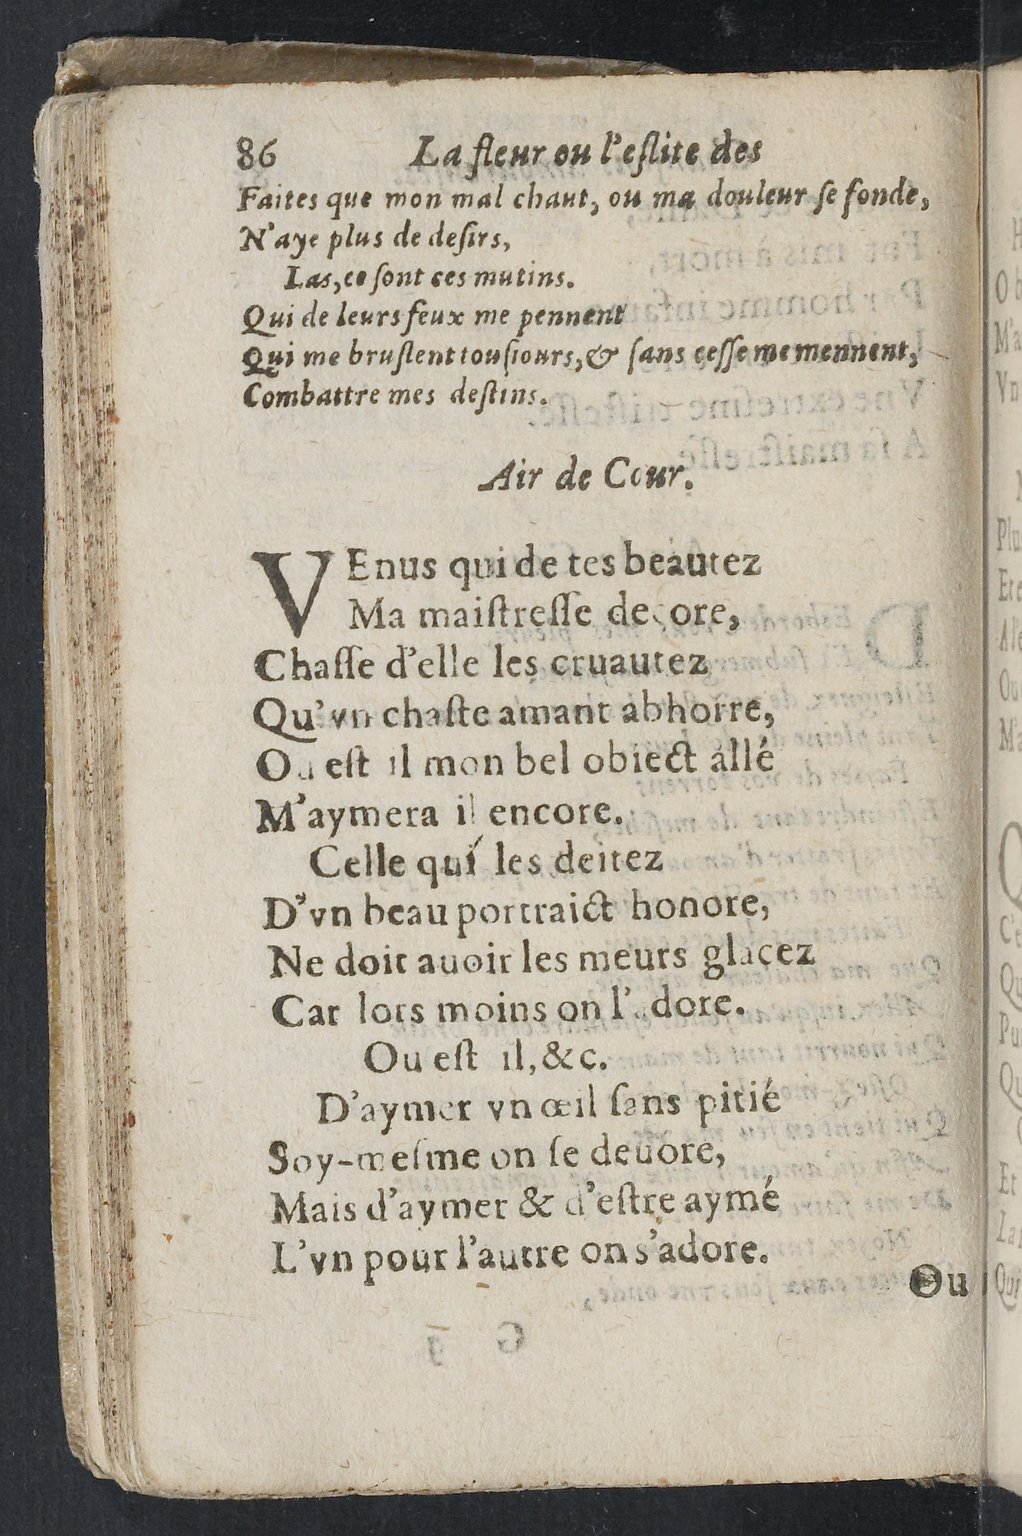 86 La fleur ou l'eſlite des
Faites que mon mal chaut, ou ma douleur ſe fonde,
N'aye plus de deſirs,
Las, ce ſont ces mutins.
Qui de leurs feux me pennent
Qui me bruſlent touſiours, & ſans ceſſe me mennent,
Combattre mes deſtins.
Air de Cour.
VEnus qui de tes beautez
Ma maiſtreſſe decore,
Chaſſe d'elle les cruautez
Qu'vn chaſte amant abhorre,
Ou eſt il mon bel obiect allé
M'aymera il encore.
Celle qui les deitez
D'vn beau portraict honore,
Ne doit auoir les meurs glacez
Car lors moins on l'adore.
Ou eſt il, &c.
D'aymer vn œil ſans pitié
Soy-meſme on ſe deuore,
Mais d'aymer & d'eſtre aymé
L'vn pour l'autre on s'adore.
Ou